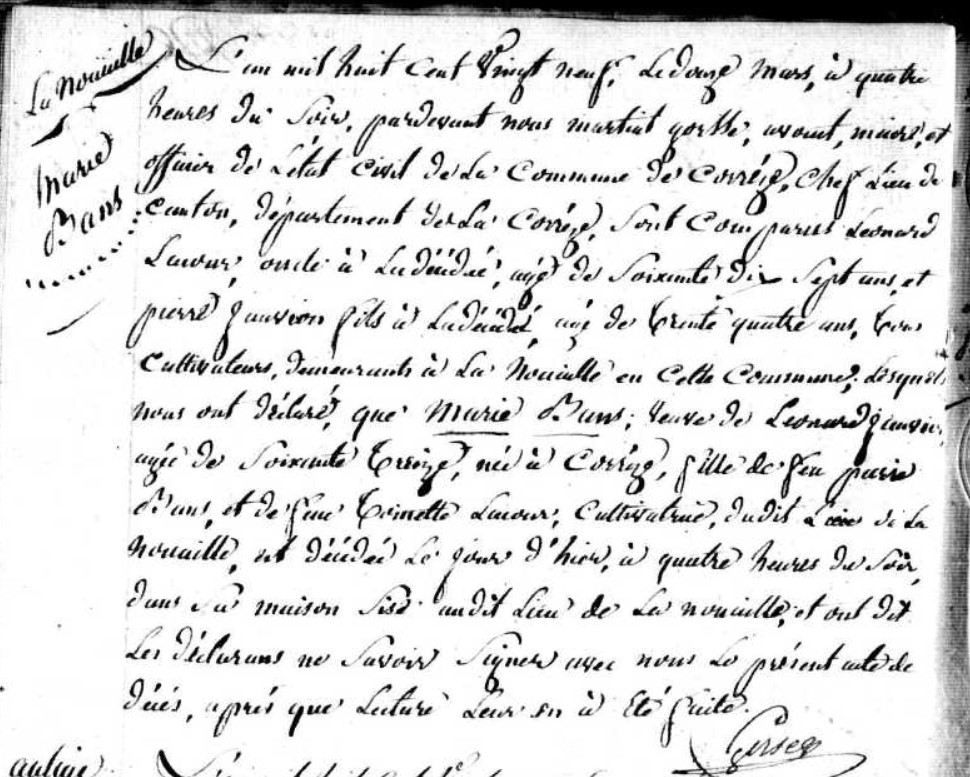 La Nouaille
Marie
Bans
L'an mil huit cent Vingt neuf, Le douze mars, à quatre
heures du Soir, pardevant nous martial gorsse, avocat, maire, et
officier de L'état Civil de La Commune de Corrèze, Chef Lieu de
Canton, département de La Corrèze, Sont Comparus Leonard
Lacour oncle à La décédée, agé de Soixante dix Sept ans, et
pierre Jauvion fils à La décédée, agé de trente quatre ans, tous
Cultivateurs, demeurants à La Nouaille en Cette Commune; Lesquels
nous ont déclaré, que Marie Bans, veuve de Leonard Jauvion,
agée de Soixante treize, née à Corrèze, fille de feu pierre
Bans, et de feue toinette Lacour, Cultivatrice, dudit Lieu de La
nouaille, est décédée Le jour d'hier, à quatre heures du Soir,
dans Sa maison Sise audit Lieu de La nouaille, et ont dit
Les déclarans ne Savoir Signer avec nous Le présent acte de
décès, après que Lecture Leur en a été faite.